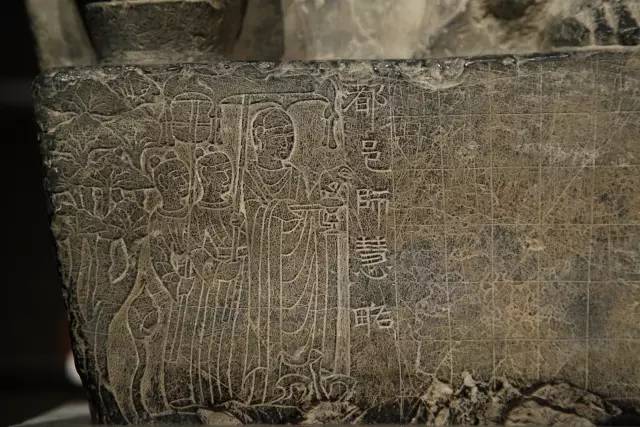 都邑師慧昭